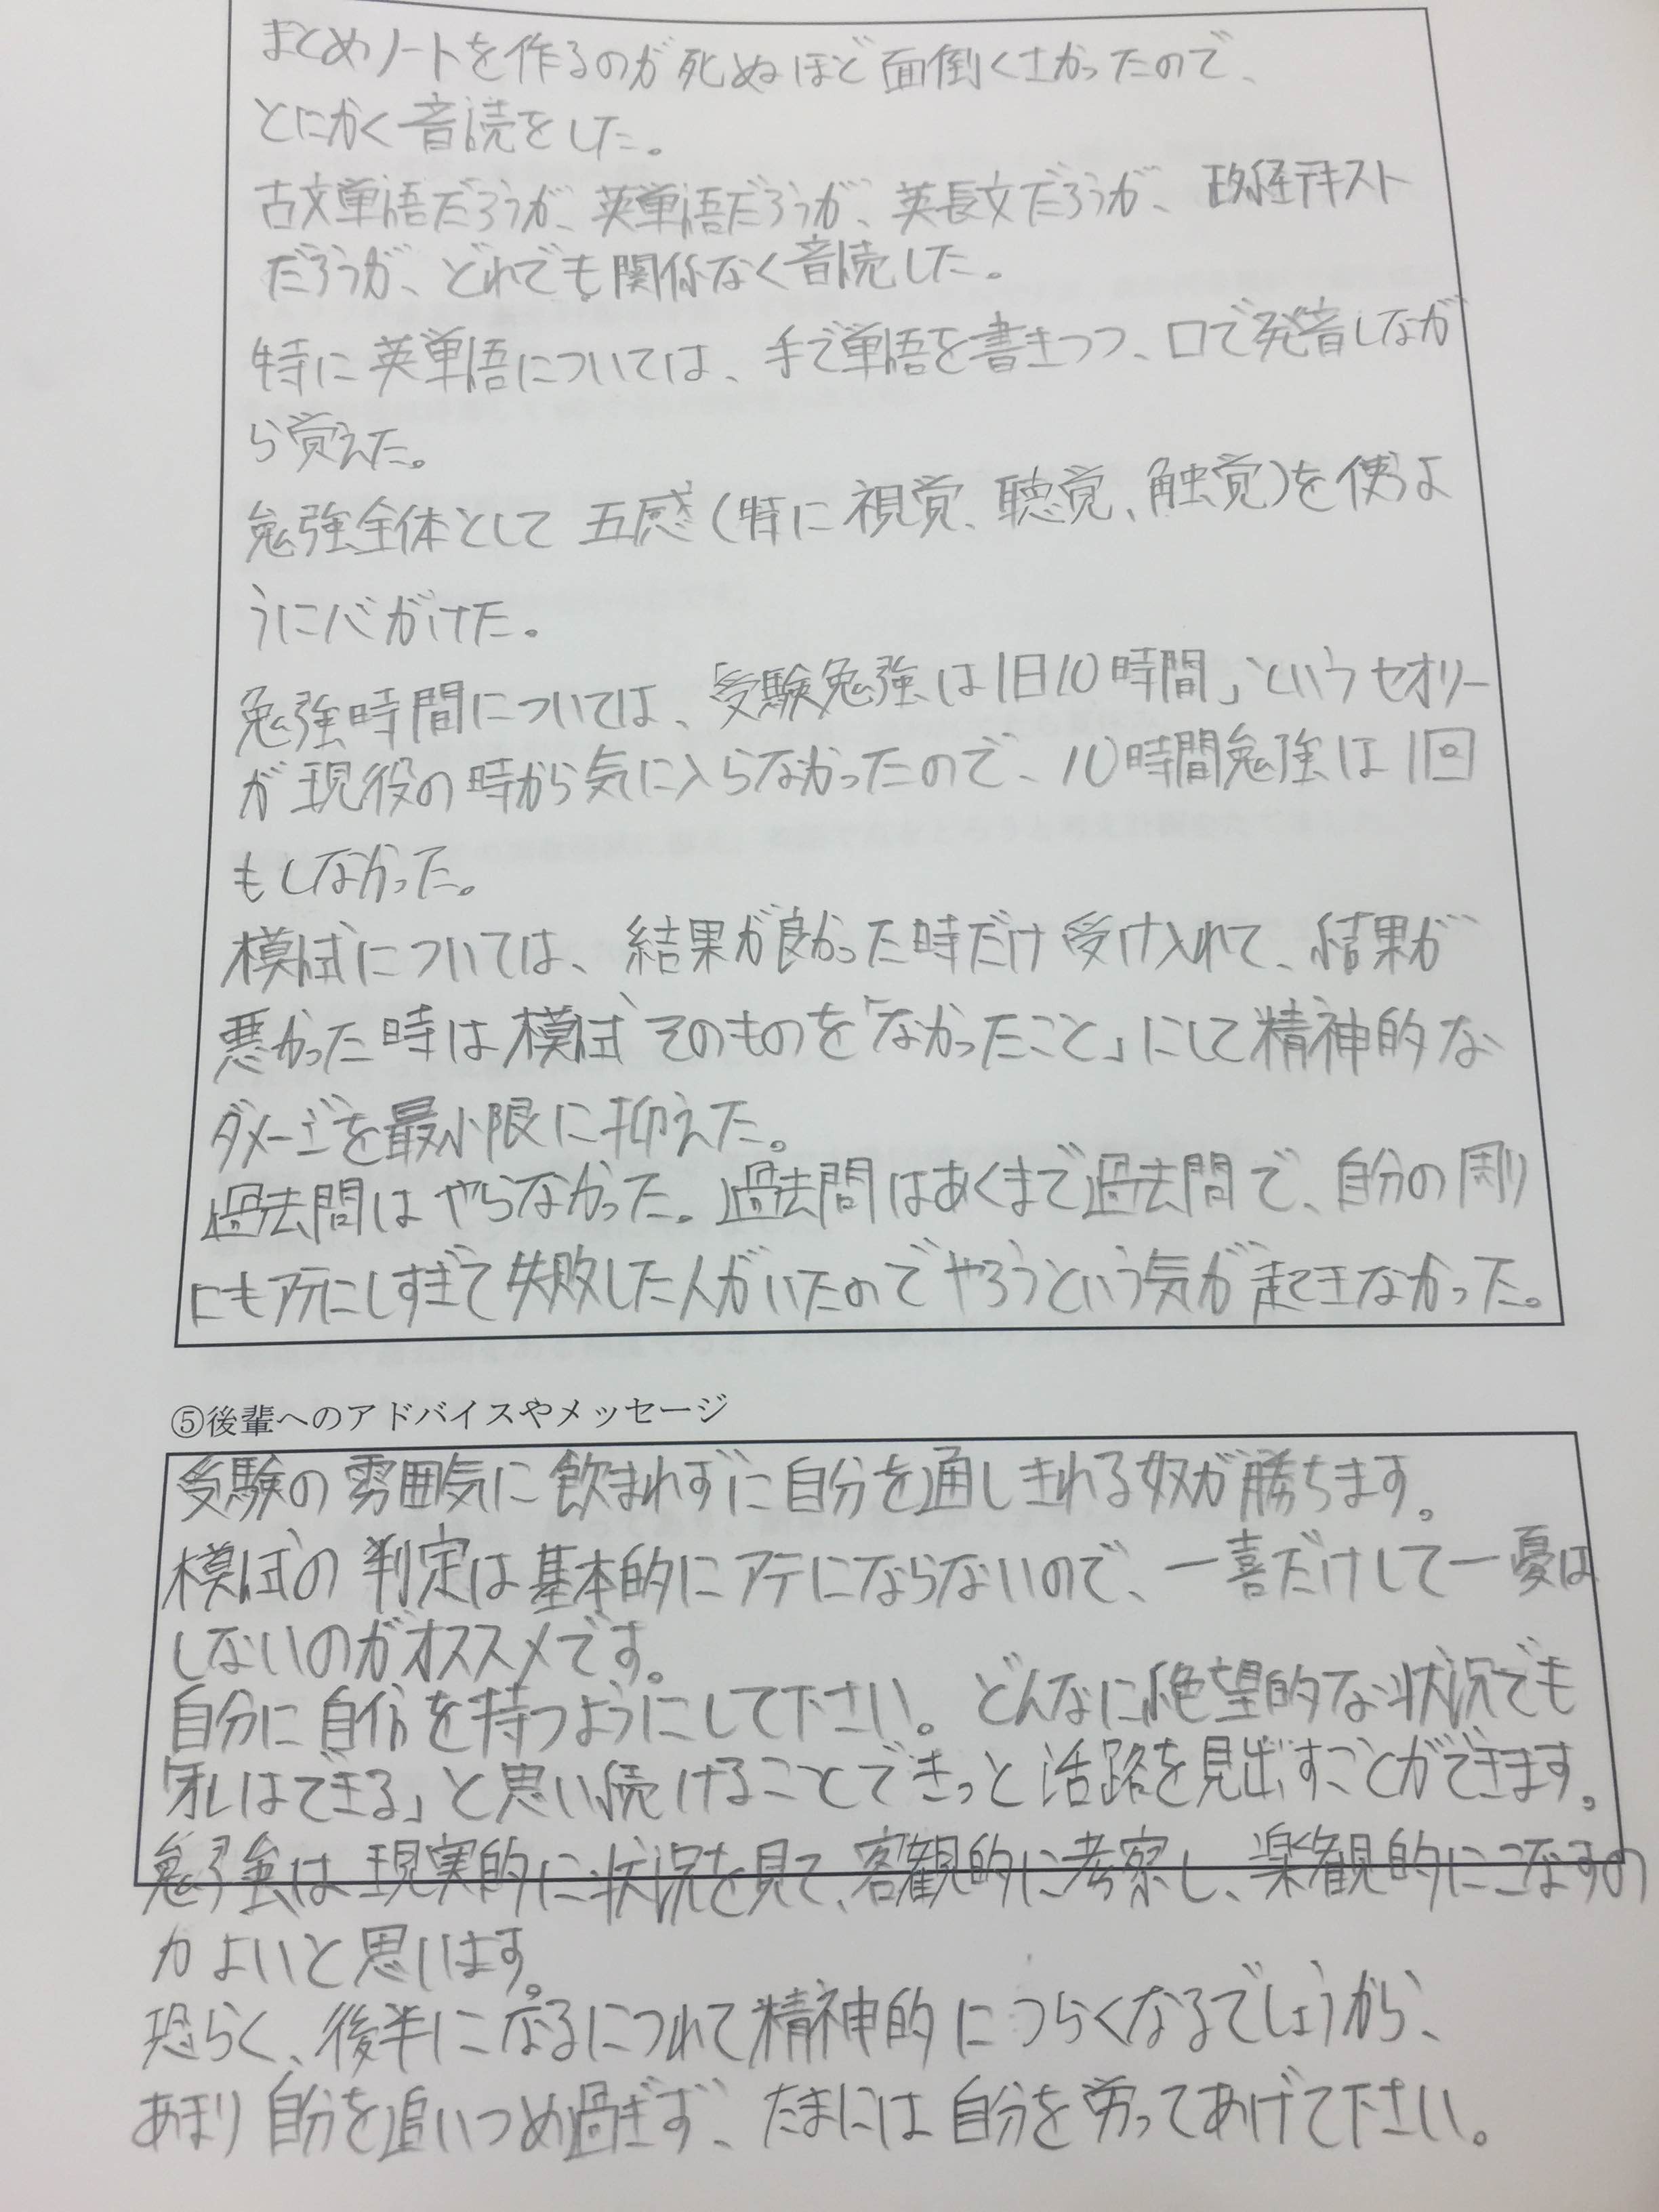 まとめノートを作るのが死ぬほど面倒くさかったので、
とにかく音読をした。
古文単語だろうが、英単語だろうが、英長文だろうが、政経テキスト
だろうが、どれでも関係なく音読した。
特に英単語については、手で単語を書きつつ、口で発音しなが
ら覚えた。
勉強全体として五感(特に視覚、聴覚、触覚)を使うよ
うに心がけた。
勉強時間については、「受験勉強は1日10時間」というセオリー
が現役の時から気に入らなかったので、10時間勉強は1回
もしなかった。
模試については、結果が良かった時だけ受け入れて、結果が
悪かった時は模試そのものを「なかったこと」にして精神的な
ダメージを最小限に抑えた。
過去問はやらなかった。過去問はあくまで過去問で、自分の周り
にもアテにしすぎて失敗した人がいたのでやろうという気が起きなかった。
⑤後輩へのアドバイスやメッセージ
受験の雰囲気に飲まれずに自分を通しきれる奴が勝ちます。
模試の判定は基本的にアテにならないので、一喜だけして一憂は
しないのがオススメです。
自分に自信を持つようにして下さい。どんなに絶望的な状況でも
「私はできる」と思い続けることできっと活路を見出すことができます。
勉強は現実的に状況を見て、客観的に考察し、楽観的にこなすの
がよいと思います。
恐らく、後半になるにつれて精神的につらくなるでしょうから、
あまり自分を追いつめ過ぎず、たまには自分を労ってあげて下さい。